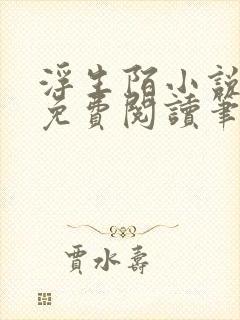 浮生陌小說
免費閱讀筆
賈水壽